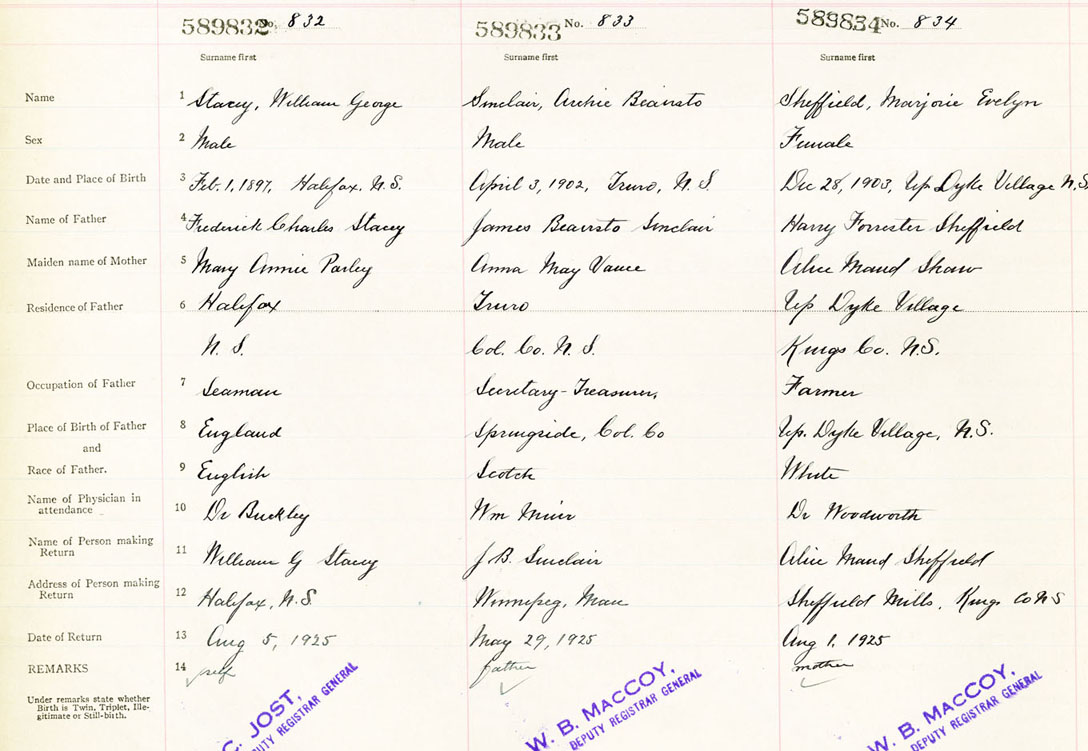 589832 No. 832 589833 No. 833 589834 No. 834
Surname first Surname first Surname first
Name 1 Stacey, William George Sinclair, Archie Beairsto Sheffield, Marjorie Evelyn
Sex 2 Male Male Female
Date and Place of Birth 3 Feb. 1, 1897, Halifax, N.S. April 3, 1902, Truro, N.S. Dec 28, 1903, Up Dyke Village N.S.
Name of Father 4 Frederick Charles Stacey James Beairsto Sinclair Harry Forrester Sheffield
Maiden name of Mother 5 Mary Annie Parley Anna May Vance Alice Maud Shaw
Residence of Father 6 Halifax Truro Up Dyke Village
N. S. Col. Co. N. S. Kings Co. N.S.
Occupation of Father 7 Seaman Secretary-Treasurer, Farmer
Place of Birth of Father 8 England Springside, Col. Co Up. Dyke Village, N.S.
and
Race of Father. 9 English Scotch White
Name of Physician in
attendance 10 Dr Buckley Wm Muir Dr Woodworth
Name of Person making
Return 11 William G Stacey J. B. Sinclair Alice Maud Sheffield
Address of Person making
Return 12 Halifax, N.S. Winnipeg, Man Sheffield Mills, Kings Co N S
Date of Return 13 Aug 5, 1925 May 29, 1925 Aug 1. 1925
REMARKS 14 self father mother
Under remarks state whether
Birth is Twin, Triplet, Ille-
gitimate or Still-birth.
C. JOST, W. B. MACCOY, W. B. MACCOY,
DEPUTY REGISTRAR GENERAL DEPUTY REGISTRAR GENERAL DEPUTY REGISTRAR GENERAL